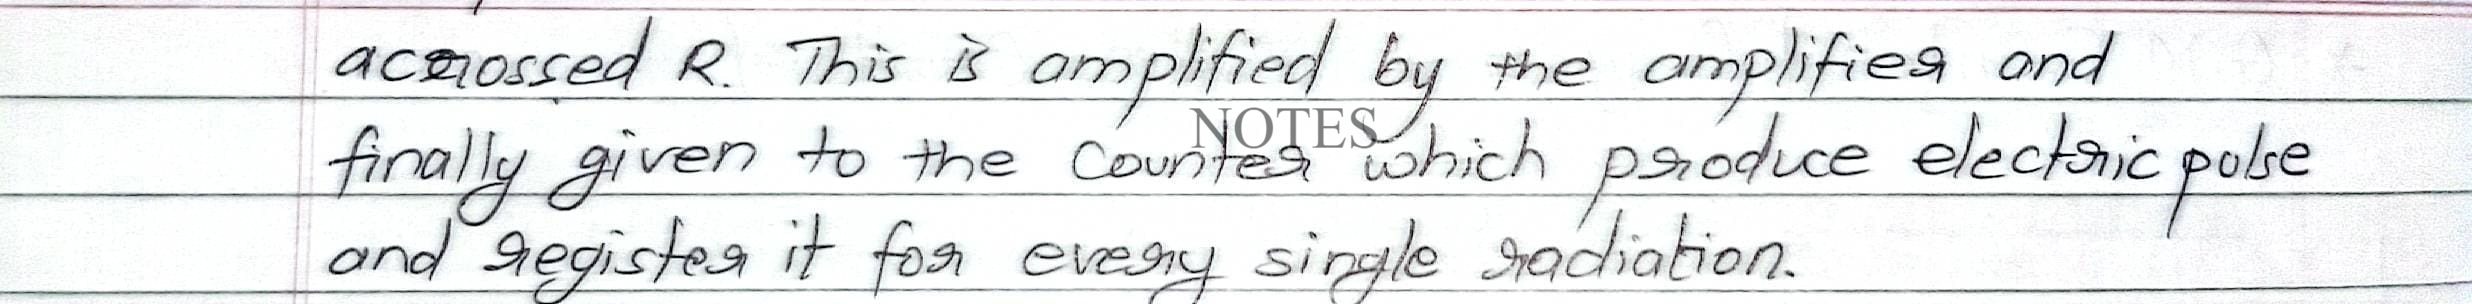 acrossed R. This is amplified by the amplifier and
NOTES
finally given to the counter which produce electric pulse
and register it for every single radiation.